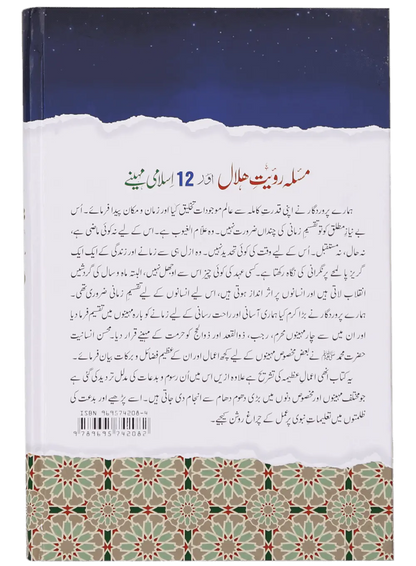 مسئلہ رؤیتِ ہلال اور 12 اسلامی مہینے
ہمارے پروردگار نے اپنی قدرت کاملہ سے عالم موجودات تخلیق کیا اور زمان و مکان پیدا فرمائے۔ اُس
بے نیاز مطلق کو تو تقسیم زمانی کی چنداں ضرورت نہیں۔ وہ علام الغیوب ہے۔ اُس کے لیے نہ کوئی ماضی ہے،
نہ حال، نہ مستقبل۔ اُس کے لیے وقت کی کوئی تحدید نہیں۔ وہ ازل ہی سے زمانے اور زندگی کے ایک ایک
گریز پا لمحے پر نگرانی کی نگاہ رکھتا ہے۔ کسی عہد کی کوئی چیز اس سے اوجھل نہیں، البتہ ماہ و سال کی گردشیں
انقلاب لاتی ہیں اور انسانوں پر اثر انداز ہوتی ہیں، اس لیے انسانوں کے لیے تقسیم زمانی ضروری تھی۔
ہمارے پروردگار نے بڑا کرم کیا ہماری آسانی اور راحت رسانی کے لیے زمانے کو بارہ مہینوں میں تقسیم فرما دیا
اور ان میں سے چار مہینوں محرم، رجب، ذوالقعدہ اور ذوالحج کو حرمت کے مہینے قرار دیا۔ محسن انسانیت
حضرت محمد ﷺ نے بعض مخصوص مہینوں کے لیے کچھ اعمال اور ان کے عظیم فضائل و برکات بیان فرمائے۔
یہ کتاب انھی اعمال عظیمہ کی تشریح ہے علاوہ ازیں اس میں اُن رسوم و بدعات کی مدلل تردید کی گئی ہے
جو مختلف مہینوں اور مخصوص دنوں میں بڑی دھوم دھام سے انجام دی جاتی ہیں۔ اسے پڑھیے اور بدعت کی
ظلمتوں میں تعلیمات نبوی پر عمل کے چراغ روشن کیجیے۔
ISBN 969574208-4
9 789695 742082